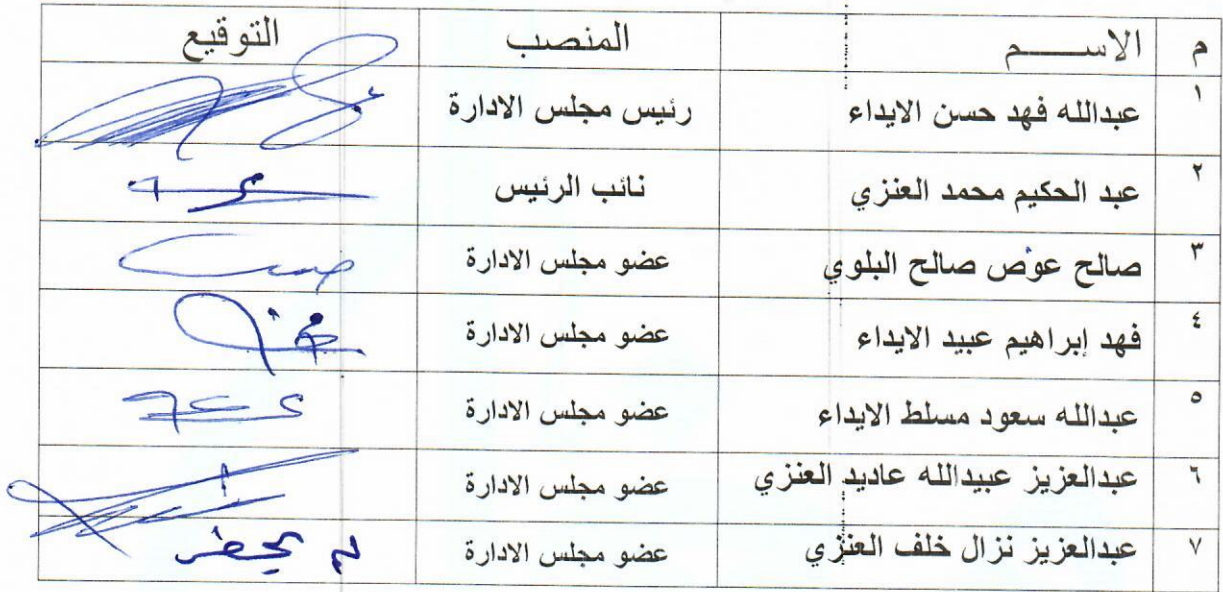 م الاســـــم المنصب التوقيع
١ عبدالله فهد حسن الايداء رئيس مجلس الادارة
٢ عبد الحكيم محمد العنزي نائب الرئيس
٣ صالح عوض صالح البلوي عضو مجلس الادارة
٤ فهد إبراهيم عبيد الايداء عضو مجلس الادارة
٥ عبدالله سعود مسلط الايداء عضو مجلس الادارة
٦ عبدالعزيز عبيدالله عاديد العنزي عضو مجلس الادارة
٧ عبدالعزيز نزال خلف العنزي عضو مجلس الادارة لم يحضر